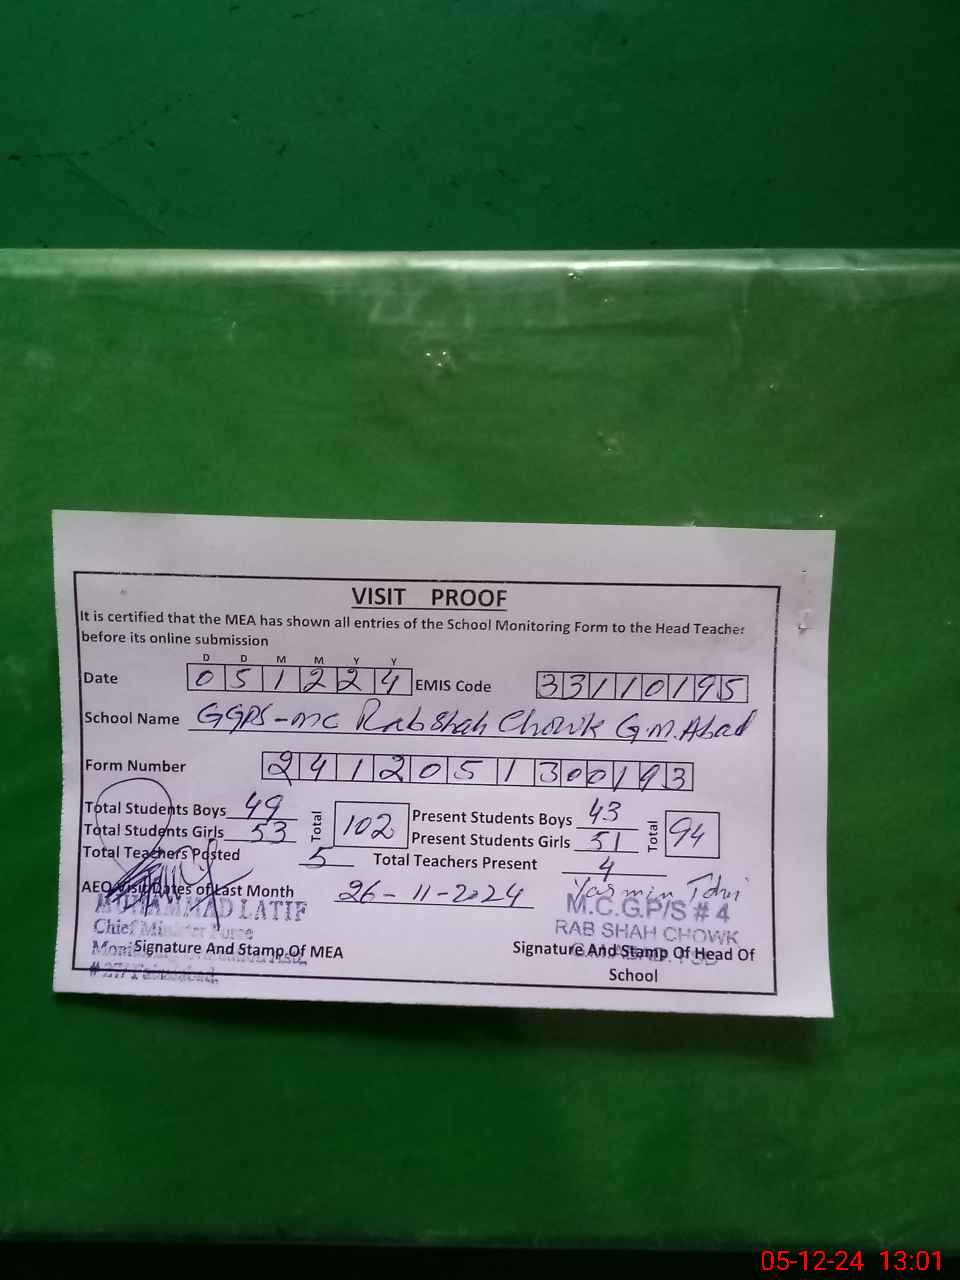 VISIT PROOF
It is certified that the MEA has shown all entries of the School Monitoring Form to the Head Teacher
before its online submission
D D M M Y Y
Date 0 5 1 2 2 4 EMIS Code 3 3 1 1 0 1 9 5
School Name GGPS-MC Rab Shah Chowk G.M.Abad
Form Number 2 4 1 2 0 5 1 3 0 0 1 9 3
Total Students Boys 49 Total 102 Present Students Boys 43 Total 94
Total Students Girls 53 Present Students Girls 51
Total Teachers Posted 5 Total Teachers Present 4
AEO Visit Dates of Last Month 26-11-2024 Yasmin
MUHAMMAD LATIF M.C.G.P/S # 4
Chief Minister RAB SHAH CHOWK
Signature And Stamp Of MEA Signature And Stamp Of Head Of
School
05-12-24 13:01